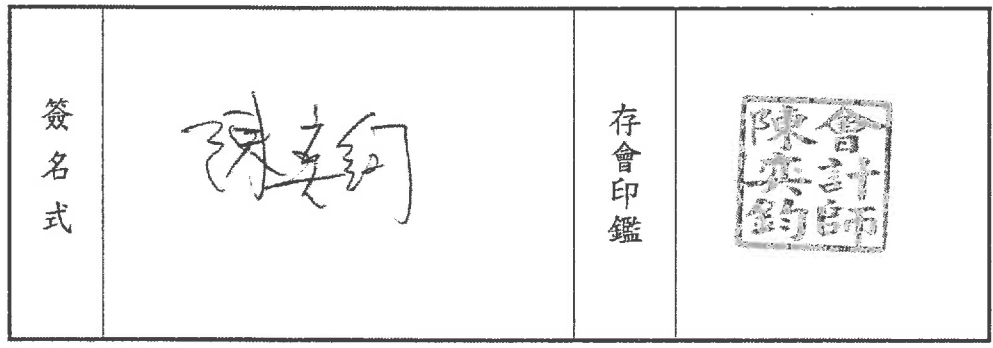 簽名式
陳奕鈞
存會印鑑
會計師
陳奕鈞